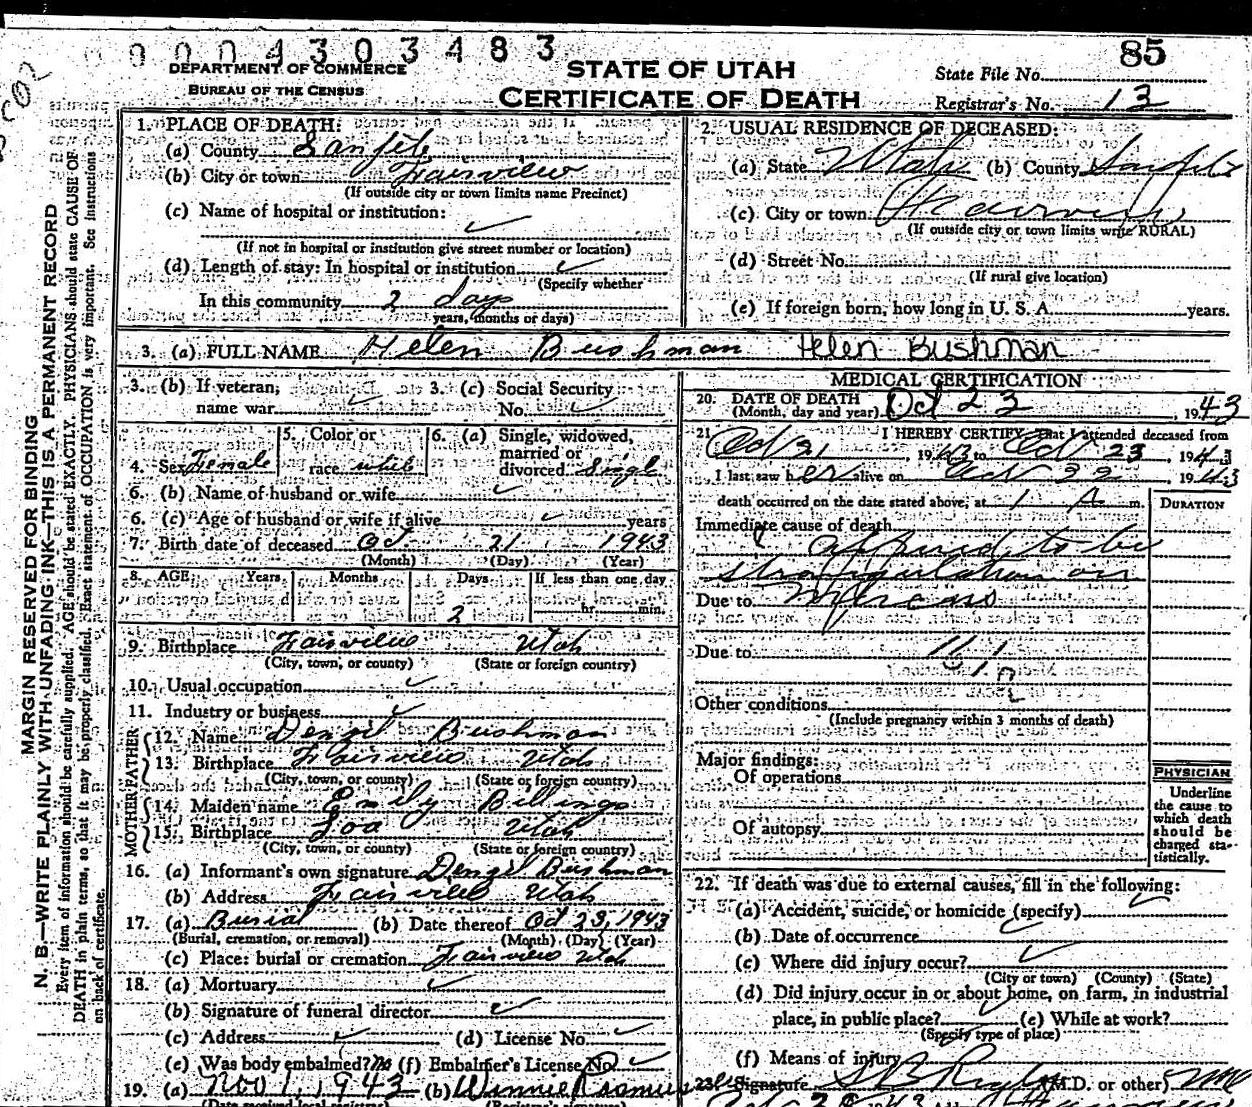 0004303483
85
DEPARTMENT OF COMMERCE
BUREAU OF THE CENSUS
STATE OF UTAH
CERTIFICATE OF DEATH
State File No.
Registrar's No. 13
MARGIN RESERVED FOR BINDING
N. B.—WRITE PLAINLY WITH UNFADING INK—THIS IS A PERMANENT RECORD
Every item of information should be carefully supplied. AGE should be stated EXACTLY. PHYSICIANS should state CAUSE OF
DEATH in plain terms, so that it may be properly classified. Exact statement of OCCUPATION is very important. See instructions
on back of certificate.
1. PLACE OF DEATH:
(a) County Sanpete
(b) City or town Fairview
(If outside city or town limits name Precinct)
(c) Name of hospital or institution:
(If not in hospital or institution give street number or location)
(d) Length of stay: In hospital or institution
(Specify whether
In this community 2 days
years, months or days)
2. USUAL RESIDENCE OF DECEASED:
(a) State Utah (b) County Sanpete
(c) City or town Fairview
(If outside city or town limits write RURAL)
(d) Street No.
(If rural give location)
(e) If foreign born, how long in U. S. A. years.
3. (a) FULL NAME Helen Bushman Helen Bushman
3. (b) If veteran, name war
3. (c) Social Security No.
4. Sex Female
5. Color or race white
6. (a) Single, widowed, married or divorced Single
6. (b) Name of husband or wife
6. (c) Age of husband or wife if alive years
7. Birth date of deceased Oct 21 1943
(Month) (Day) (Year)
8. AGE: Years Months Days If less than one day
2 hr. min.
9. Birthplace Fairview Utah
(City, town, or county) (State or foreign country)
10. Usual occupation
11. Industry or business
FATHER
12. Name Denzil Bushman
13. Birthplace Fairview Utah
(City, town, or county) (State or foreign country)
MOTHER
14. Maiden name Emily Billings
15. Birthplace Loa Utah
(City, town, or county) (State or foreign country)
16. (a) Informant's own signature Denzil Bushman
(b) Address Fairview Utah
17. (a) Burial (b) Date thereof Oct 23, 1943
(Burial, cremation, or removal) (Month) (Day) (Year)
(c) Place: burial or cremation Fairview Utah
18. (a) Mortuary
(b) Signature of funeral director
(c) Address (d) License No.
(e) Was body embalmed? No (f) Embalmer's License No.
19. (a) Nov 1, 1943 (b) Winnie
(Date received local registrar) (Registrar's signature)
MEDICAL CERTIFICATION
20. DATE OF DEATH
(Month, day and year) Oct 23, 1943
21. I HEREBY CERTIFY that I attended deceased from
Oct 21, 1943 to Oct 23, 1943
I last saw her alive on Oct 22, 1943
death occurred on the date stated above, at 1 A m.
DURATION
Immediate cause of death
to be
Due to
Due to
Other conditions
(Include pregnancy within 3 months of death)
Major findings:
Of operations
Of autopsy
PHYSICIAN
Underline
the cause to
which death
should be
charged sta-
tistically.
22. If death was due to external causes, fill in the following:
(a) Accident, suicide, or homicide (specify)
(b) Date of occurrence
(c) Where did injury occur?
(City or town) (County) (State)
(d) Did injury occur in or about home, on farm, in industrial
place, in public place? (e) While at work?
(Specify type of place)
(f) Means of injury
23. Signature (M.D. or other)